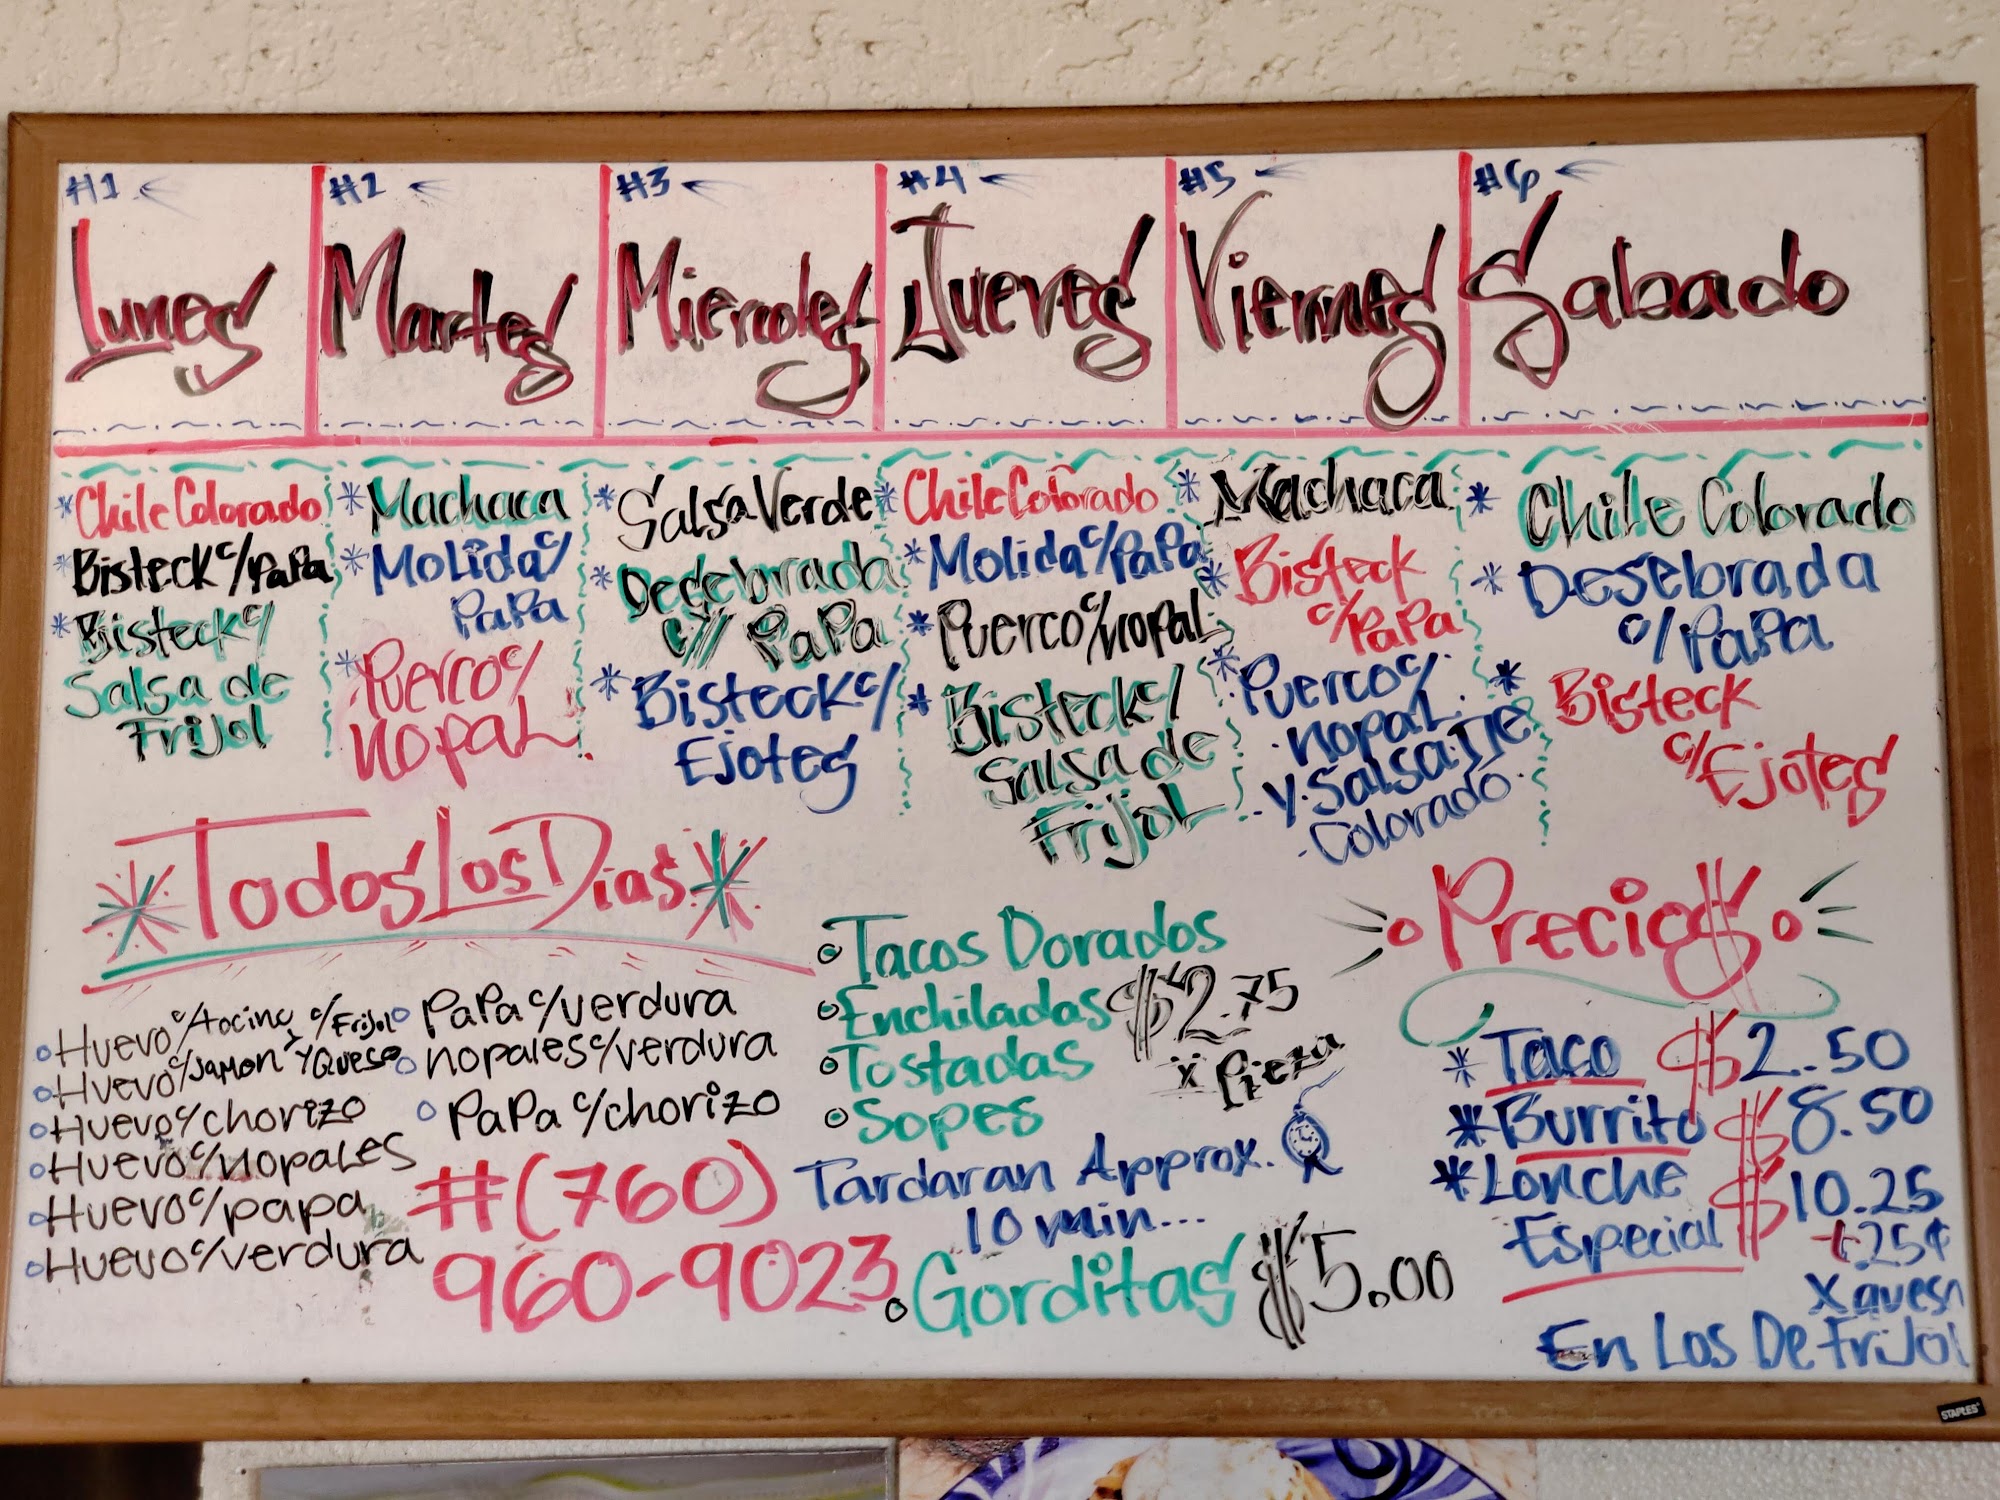 #1
Lunes
#2
Martes
#3
Miercoles
#4
Jueves
#5
Viernes
#6
Sabado
*Chile Colorado
*Bisteck c/PaPa
*Bisteck c/
Salsa de
Frijol
*Machaca
*Molida c/
PaPa
*Puerco c/
nopaL
*Salsa Verde
*Desebrada
c// PaPa
*Bisteck c/
Ejotes
*Chile Colorado
*Molida c/PaPa
*Puerco c/nopaL
*Bisteck c/
Salsa de
FrijoL
*Machaca
*Bisteck
c/PaPa
*Puerco c/
nopaL
y Salsa De
Colorado
*Chile Colorado
*Desebrada
c/PaPa
*Bisteck
c/Ejotes
*Todos Los Dias*
Huevo c/tocino c/Frijol
Huevo c/Jamon y Y Queso
Huevo c/chorizo
Huevo c/nopales
Huevo c/papa
Huevo c/verdura
PaPa c/verdura
nopales c/verdura
PaPa c/chorizo
#(760)
960-9023
Tacos Dorados
Enchiladas $2.75
Tostadas x Pieza
Sopes
Tardaran Approx.
10 min...
Gorditas $5.00
Precios
*Taco $2.50
*Burrito $8.50
*Lonche $10.25
Especial +.25¢
X queso
En Los De Frijol
STAPLES